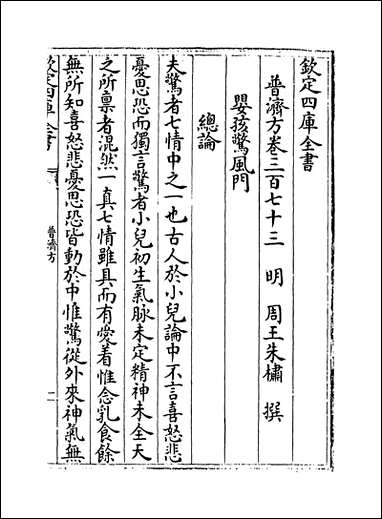 欽定四庫全書
普濟方卷三百七十三 明 周王朱橚 撰
嬰孩驚風門
總論
夫驚者七情中之一也古人於小兒論中不言喜怒悲
憂思恐而獨言驚者小兒初生氣脉未定精神未全天
之所禀者混然一真七情雖具而有愛着惟念乳食餘
無所知喜怒悲憂思恐皆動於中惟驚從外來神氣無
欽定四庫全書
普濟方
二